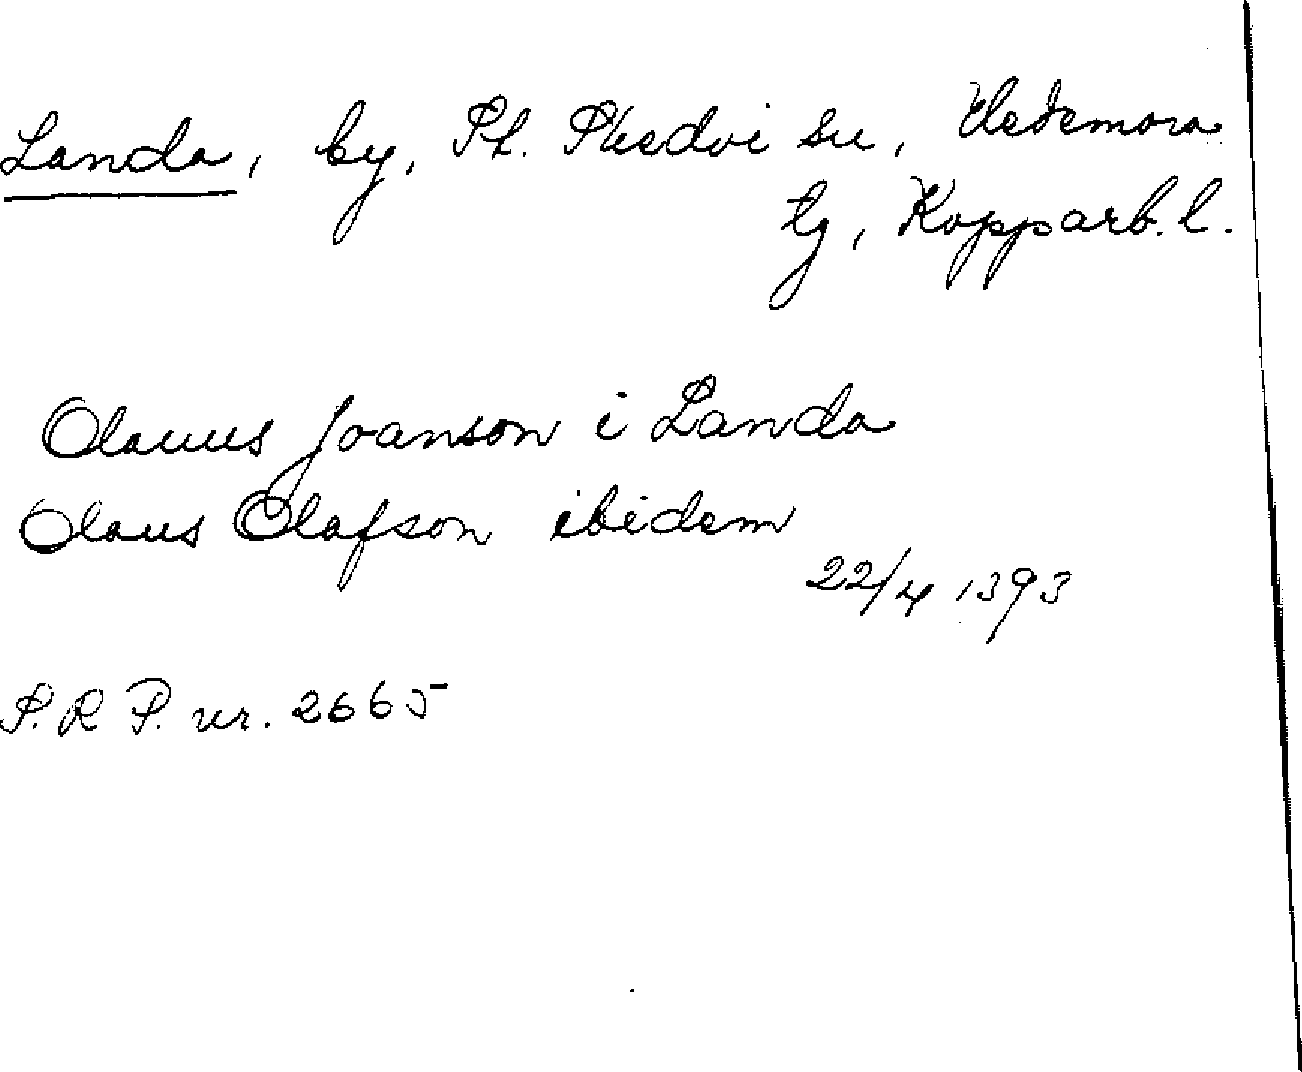 Landa, by, St. Skedvi sn, Hedemora
tg, Kopparb. l.
Olauus Joanson i Landa
Olaus Olafson ibidem
22/4 1393
S. R P. nr. 2665